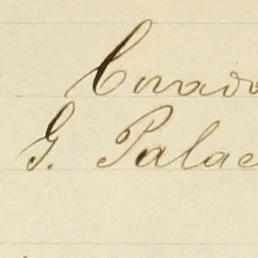 Conrado
G. Palac